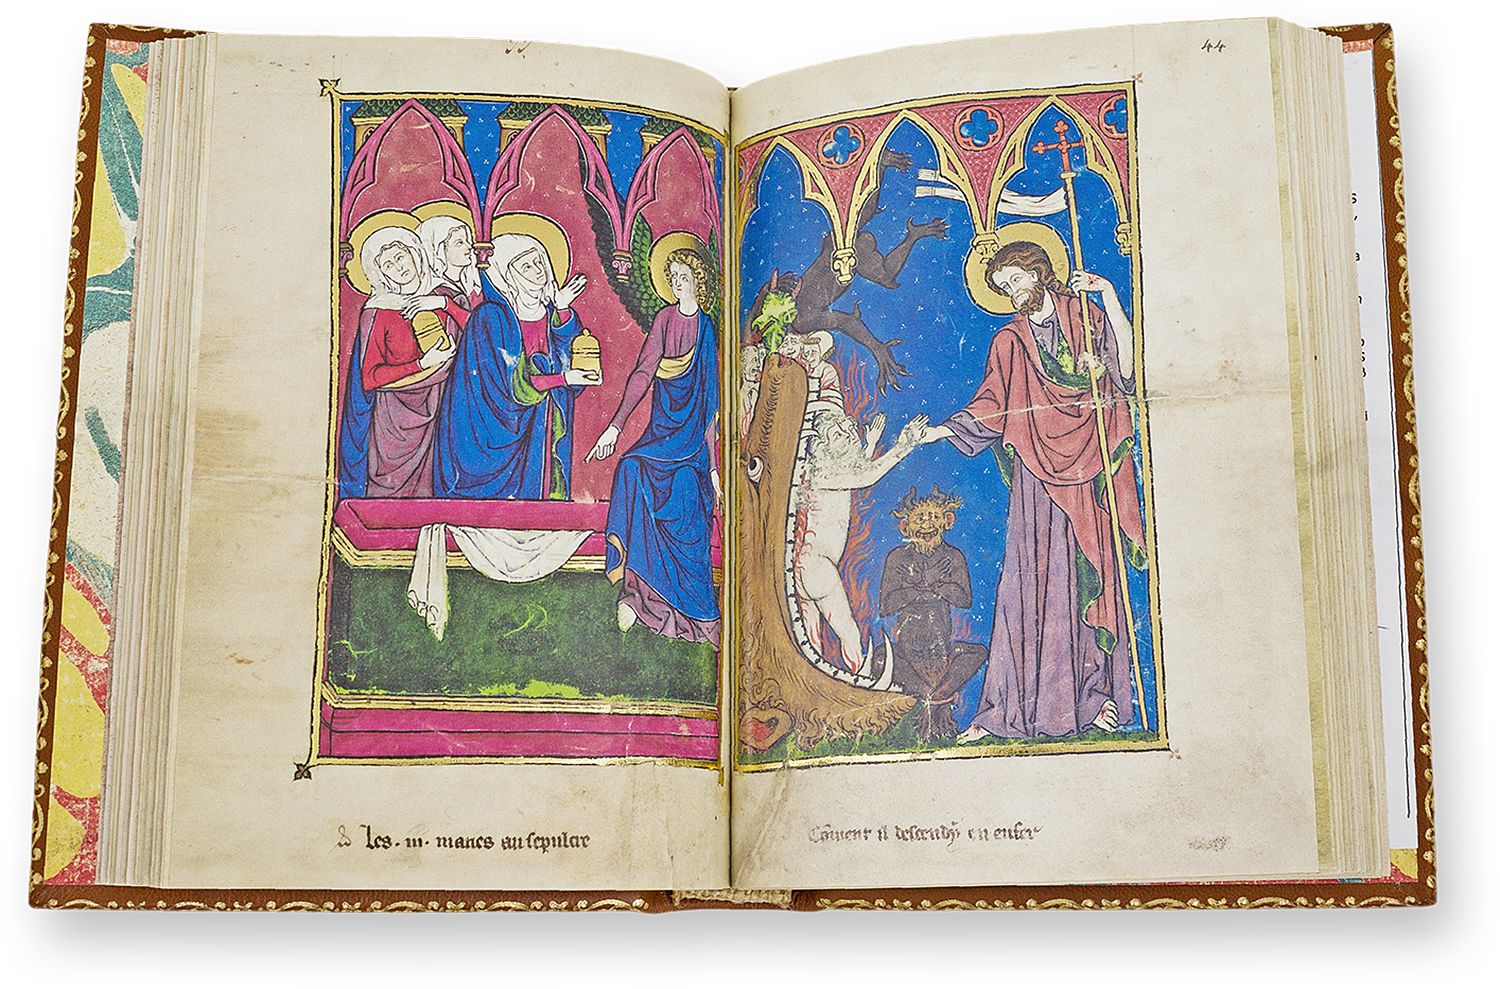 44
Les · iii · maries au sepulcre
Cōment il descendy en enfer